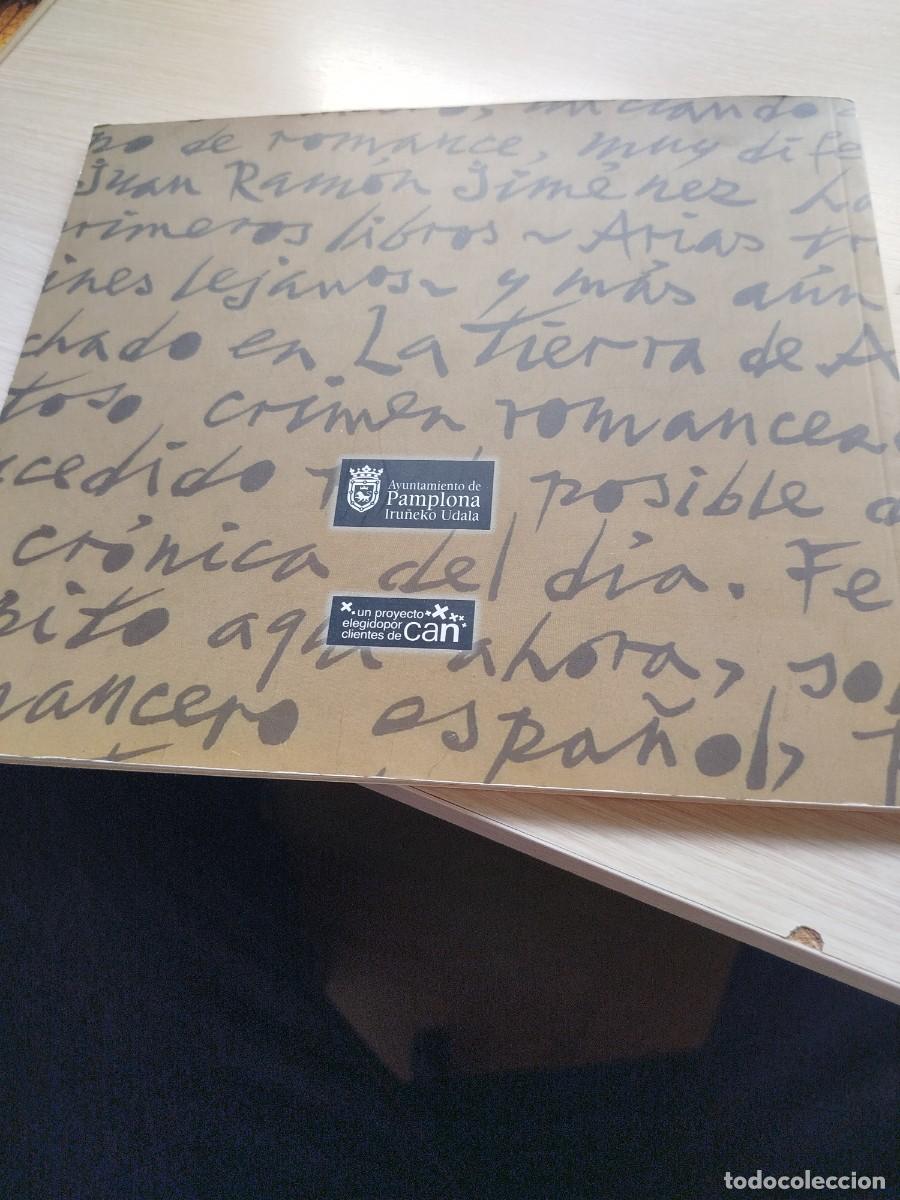 de romance, muy dife
Juan Ramón Jiménez La
rimeros libros ~ Arias tr
ines lejanos ~ y más aún
chado en La Tierra de A
toso crimen romancer
cedido posible a
crónica del día. Fe
bito aquí ahora, so
mancero español,
Ayuntamiento de
Pamplona
Iruñeko Udala
un proyecto
elegidopor
clientes de can
todocoleccion